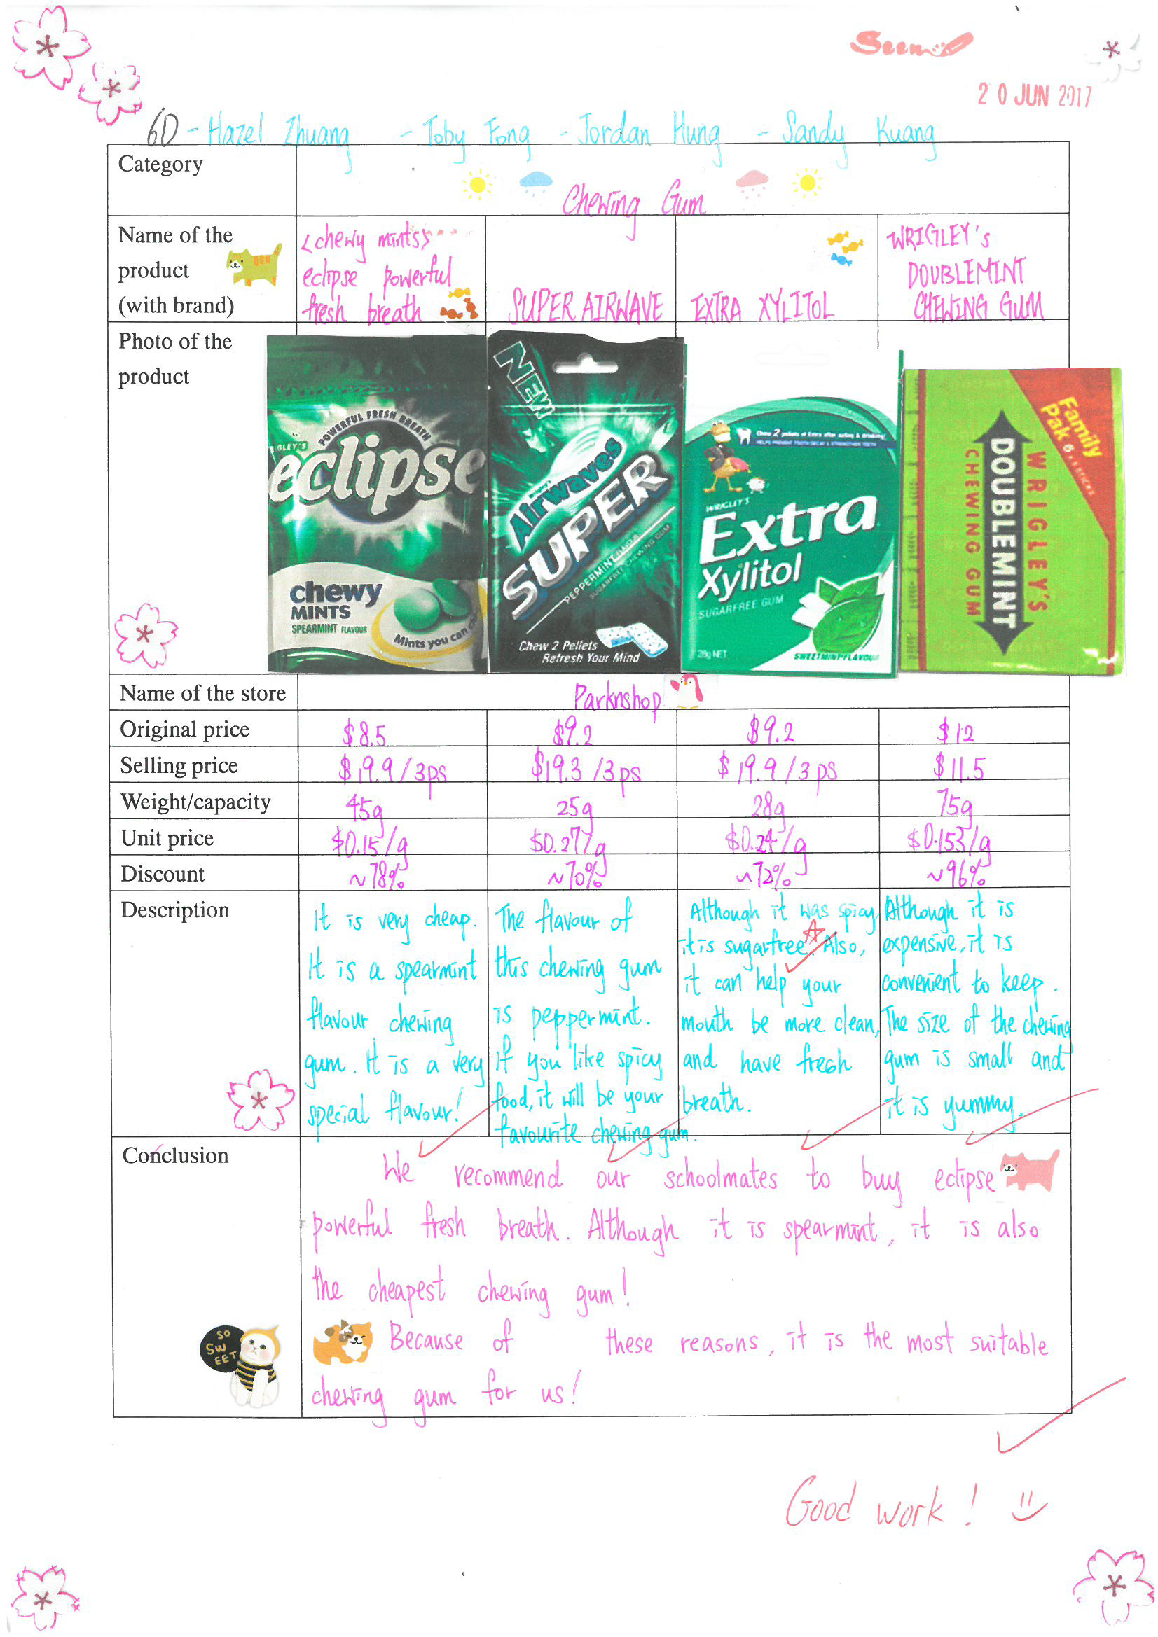 Seen
20 JUN 2017
6D - Hazel Zhuang - Toby Fong - Jordan Hung - Sandy Kuang
Category
Chewing Gum
Name of the product (with brand)
<chewy mints>
eclipse powerful
fresh breath
SUPER AIRWAVE
EXTRA XYLITOL
WRIGLEY's
DOUBLEMINT
CHEWING GUM
Photo of the
product
POWERFUL FRESH BREATH
eclipse
chewy
MINTS
SPEARMINT FLAVOUR
Mints you can
NEW
Airwaves
SUPER
PEPPERMINT
Chew 2 Pellets
Refresh Your Mind
WRIGLEY'S
Extra
Xylitol
SUGARFREE GUM
28g NET
SWEETMINT FLAVOUR
Family
Pak
WRIGLEY'S
DOUBLEMINT
CHEWING GUM
Name of the store
Parknshop
Original price
$8.5
$9.2
$9.2
$12
Selling price
$19.9/3ps
$19.3/3ps
$19.9/3ps
$11.5
Weight/capacity
45g
25g
28g
75g
Unit price
$0.15/g
$0.277/g
$0.24/g
$0.153/g
Discount
~78%
~70%
~72%
~96%
Description
It is very cheap.
It is a spearmint
flavour chewing
gum. It is a very
special flavour!
The flavour of
this chewing gum
is peppermint.
If you like spicy
food, it will be your
favourite chewing gum.
Although it was spicy
it is sugarfree. Also,
it can help your
mouth be more clean,
and have fresh
breath.
Although it is
expensive, it is
convenient to keep.
The size of the chewing
gum is small and
it is yummy.
Conclusion
We recommend our schoolmates to buy eclipse
powerful fresh breath. Although it is spearmint, it is also
the cheapest chewing gum!
Because of these reasons, it is the most suitable
chewing gum for us!
SO
SW
EET
Good work!